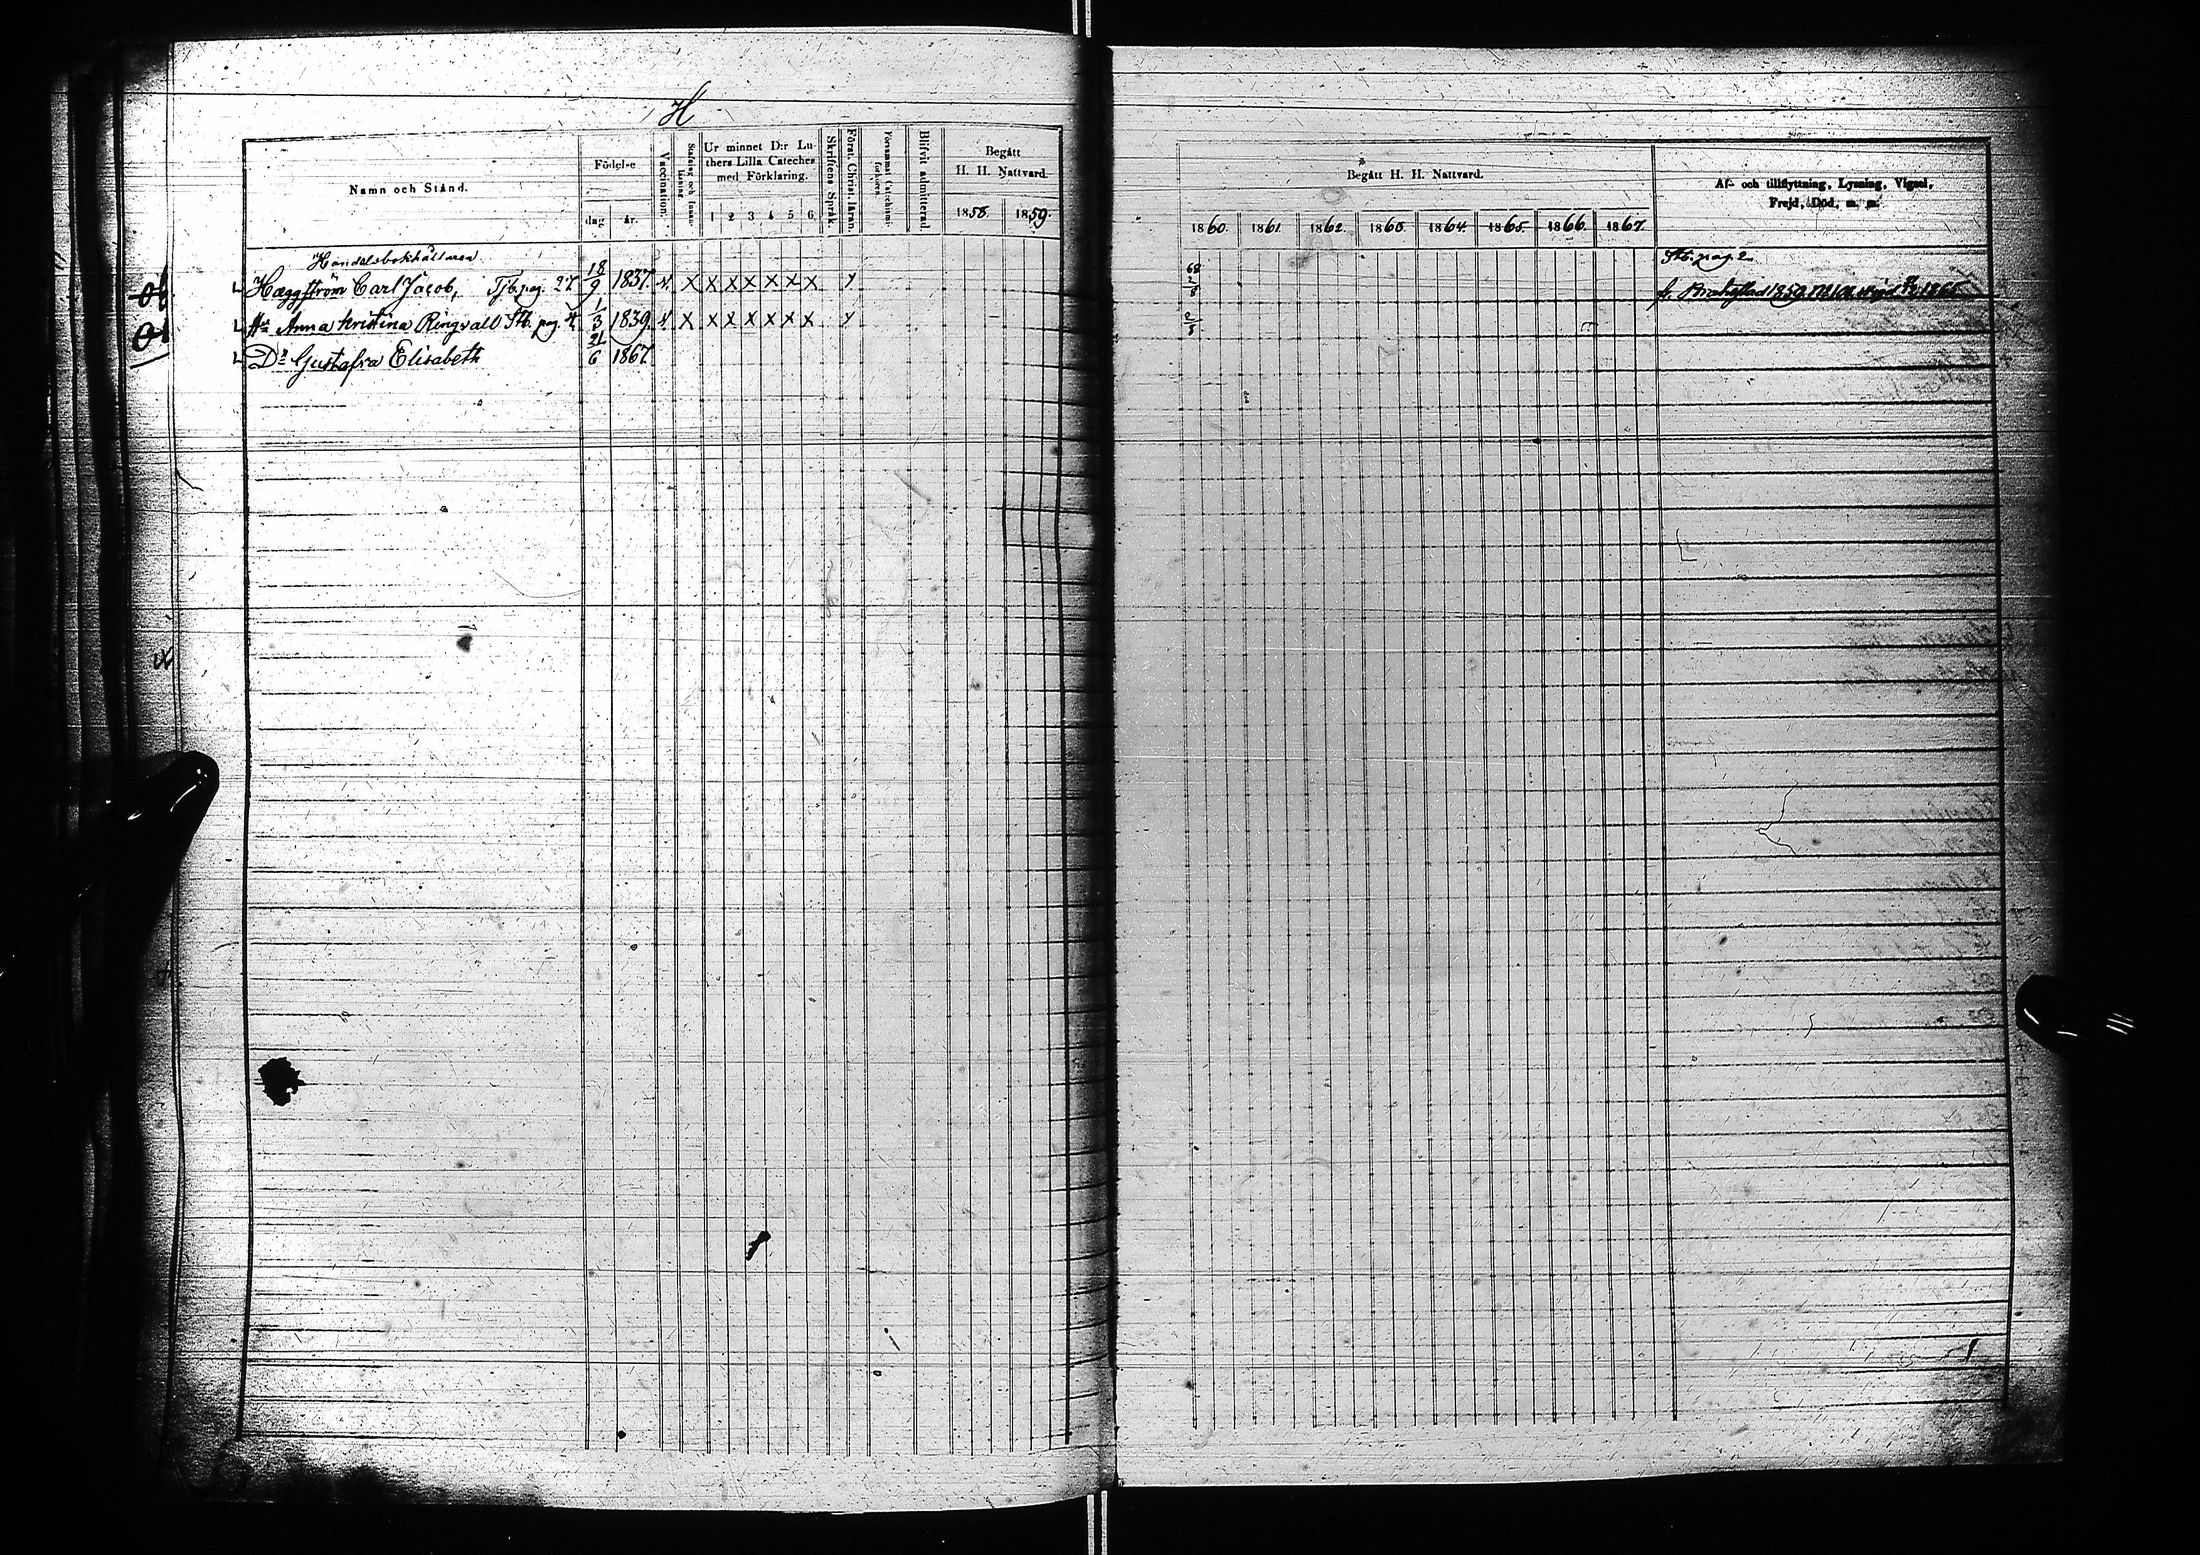 H
Namn och Stånd.
Födelse
dag
år.
Vaccination.
Stafning och Innanläsning
Ur minnet D:r Lu-
thers Lilla Cateches
med Förklaring.
1 2 3 4 5 6
Skriftens Språk.
Förest. Christ. läran.
Försummat Catechismi-
förhören
Blifvit admitterad.
Begått
H. H. Nattvard.
1858. 1859.
Begått H. H. Nattvard.
1860. 1861. 1862. 1863. 1864. 1865. 1866. 1867.
Af- och tillflyttning, Lysning, Vigsel,
Frejd, Död, m. m.
Handelsbokhållaren
Stb. pag. 2
Hæggström Carl Jacob, Tjb. pag. 27 18/9 1837. v. X X X X X X X y 68 2/8
Hu Anna Kristina Ringvall Stb. pag. 4. 1/3 1839. v. X X X X X X X y 2/8
Dr Gustafva Elisabeth 21/6 1867.